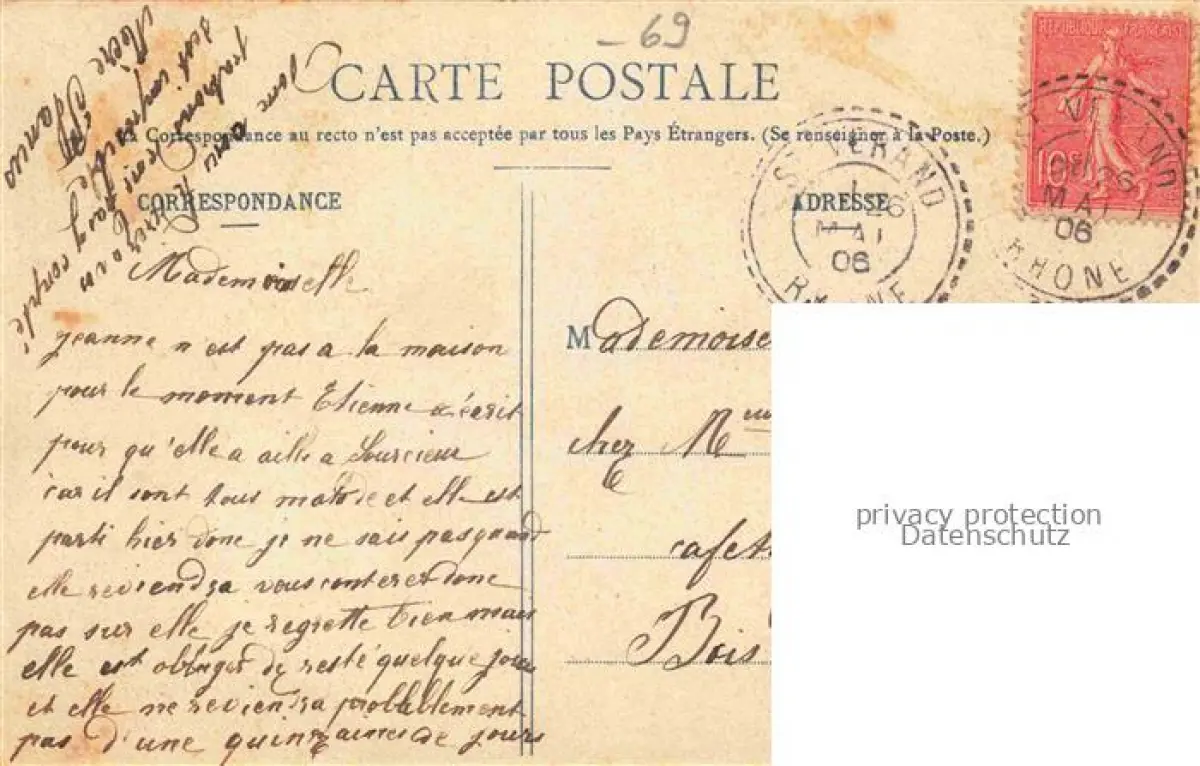 -69
CARTE POSTALE
La Correspondance au recto n'est pas acceptée par tous les Pays Étrangers. (Se renseigner à la Poste.)
CORRESPONDANCE
ADRESSE
REPUBLIQUE FRANÇAISE
10c
ST VERAND
26
MAI
06
RHONE
Mademoiselle
jeanne n'est pas a la maison
pour le moment Etienne a écrit
pour qu'elle a aille a Sourcieux
car il sont tous malade et elle est
parti hier donc je ne sais pas quand
elle reviendra vous conterer donc
pas sur elle je regrette bien mais
elle est obliger de resté quelque jours
et elle ne reviendra probablement
pas d'une quinzaines de jours
Mademoise
chez Mme
cafet
Bois
privacy protection
Datenschutz